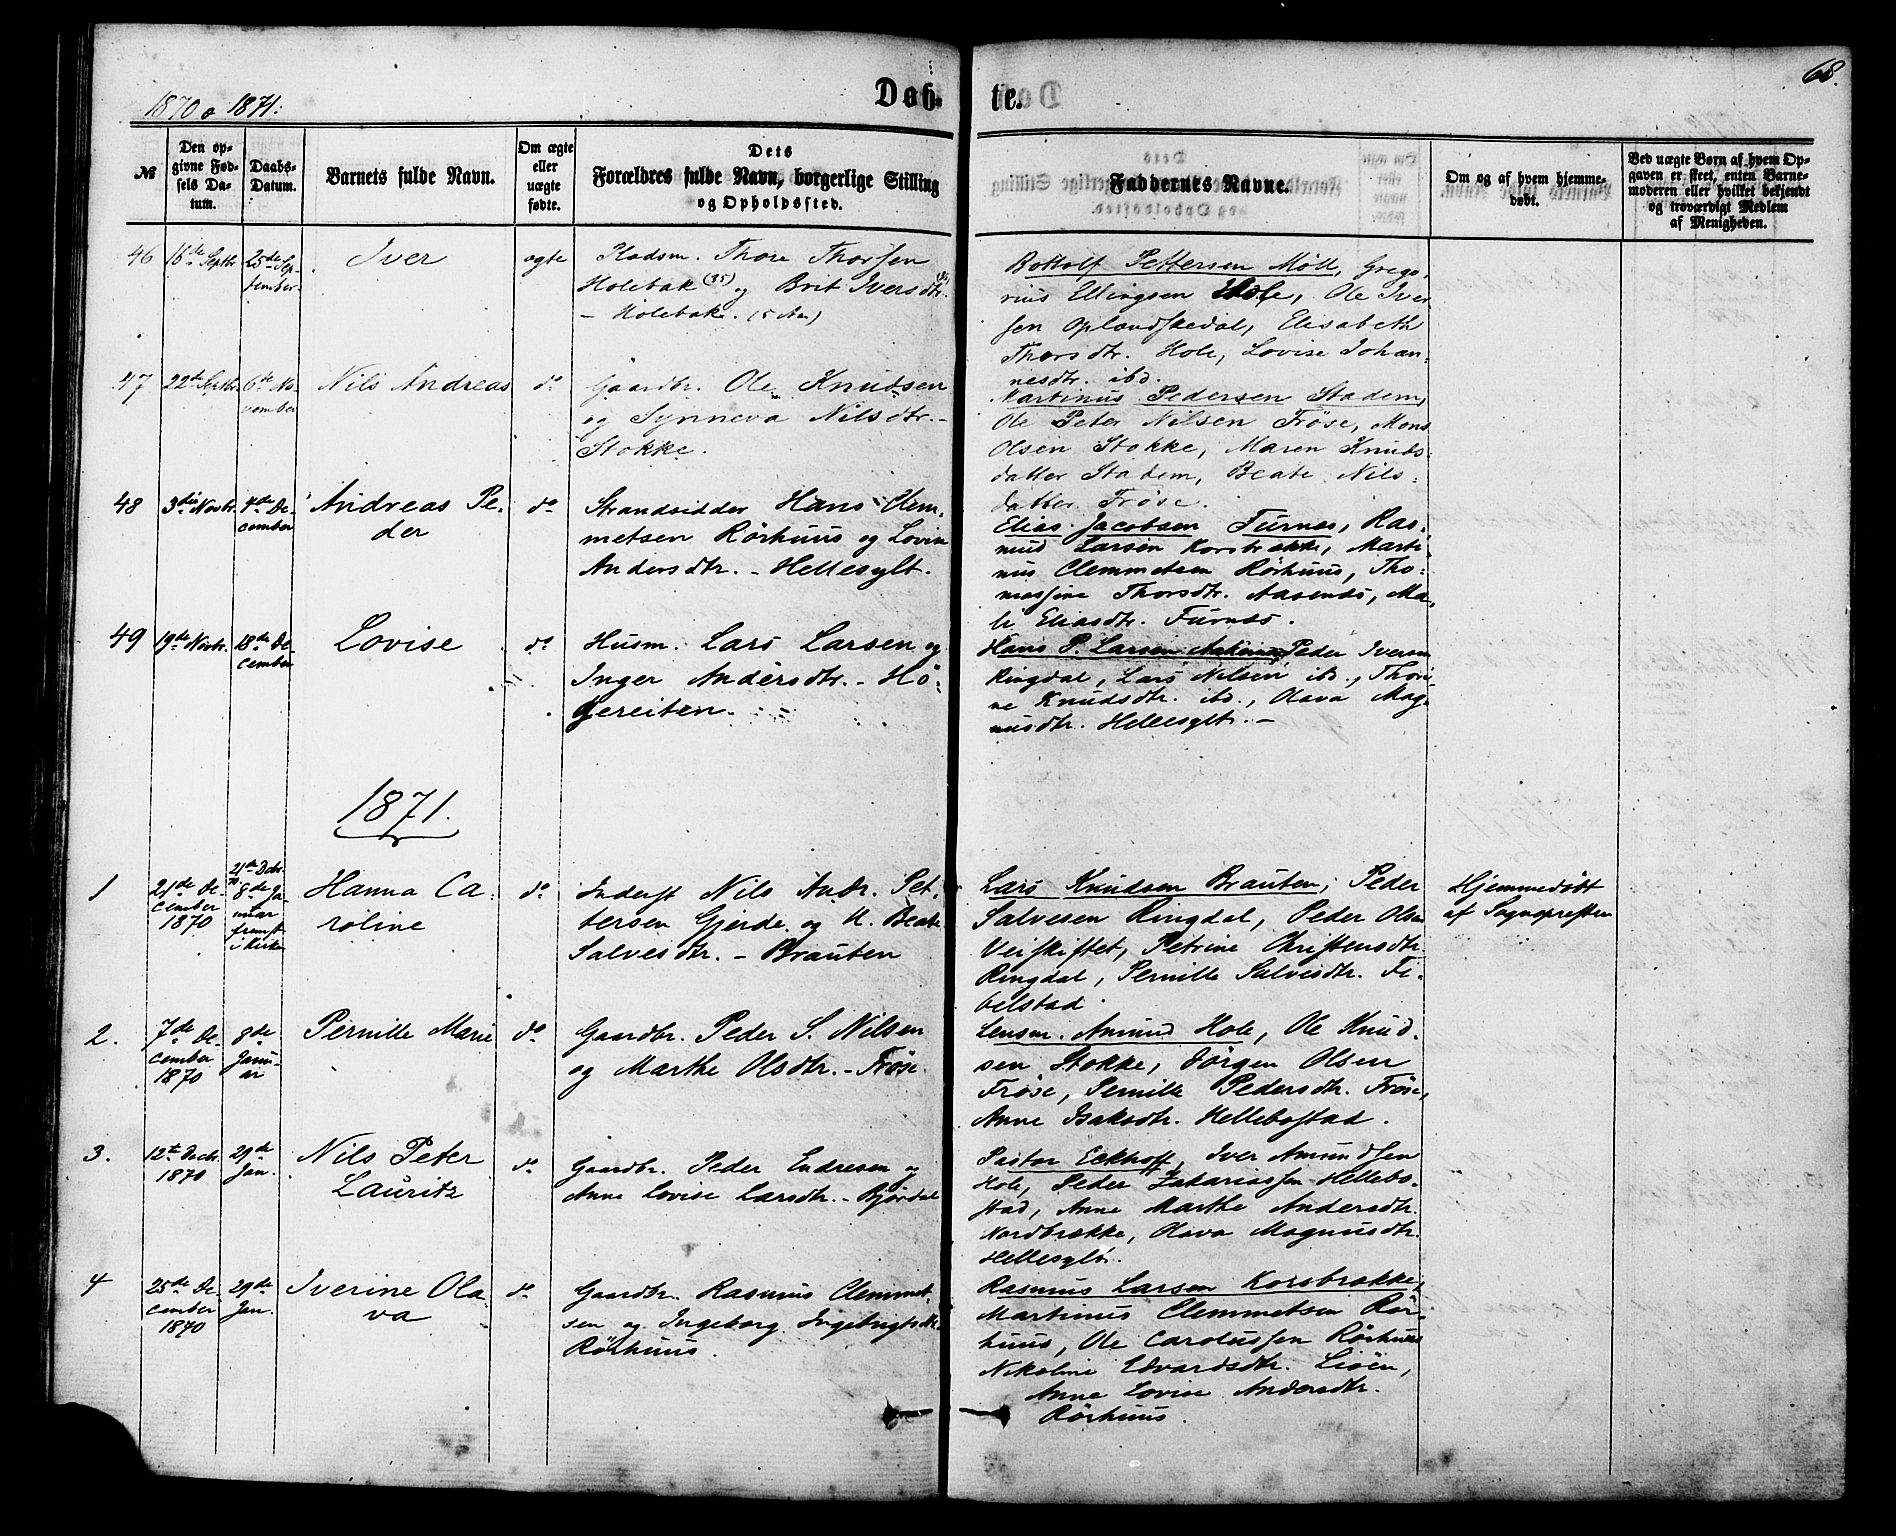 68.
1870 o 1871.
Døb-
te.
№
Den op-
givne Fød-
sels Da-
tum.
Daabs-
Datum.
Barnets fulde Navn.
Om ægte
eller
uægte
fødte.
Dets
Forældres fulde Navn, borgerlige Stilling
og Opholdssted.
Faddernes Navne.
Om og af hvem hjemme-
døbt.
Ved uægte Børn af hvem Op-
gaven er skeet, enten Barne-
moderen eller hvilket bekjendt
og troværdigt Medlem
af Menigheden.
46
16de Septbr
25de Sep-
tember
Iver
ægte
Pladsm. Thore Thorsen
Holebak (35) og Brit Iversdtr.
- Holebak. (5 Aar)
Bottolf Pettersen Möll, Grego-
rius Ellingsen Hole, Ole Iver
sen Oplandskedal, Elisabeth
Thorsdtr. Hole, Lovise Johan-
nesdtr. ibd.
47
22de Septbr.
6te No-
vember
Nils Andreas
do
Gaardbr. Ole Knudsen
og Synneva Nilsdtr. -
Stokke.
Martinus Pedersen Stadem,
Ole Peter Nilsen Fröse, Mons
Olsen Stokke, Maren Knuds-
datter Stadem, Beate Nils-
datter Fröse.
48
3die Novbr.
4de De-
cember
Andreas Pe-
der
do
Strandsidder Hans Clem-
metsen Rörhuus og Lovise
Andersdtr. - Hellesylt.
Elias Jacobsen Furnæs, Ras-
mus Larsen Korsbrække, Marti-
nus Clemmetsen Rörhuus, Tho-
massine Thorsdtr. Aasenæs, Ma-
li Eliasdtr. Furnæs.
49
19de Novbr.
18de De-
cember
Lovise
do
Husm. Lars Larsen og
Inger Andersdtr. - Hö-
gereiten.
Hans P. Larsen Peder Iversen
Ringdal, Lars Nilsen ibd., Thori-
ne Knudsdtr. ibd., Olava Mag-
nusdtr. Hellesylt. -
1871.
1
21de De-
cember
1870
21de Decbr.
70
8de Ja-
nuar
fremst.
i Kirke
Hanna Ca-
roline
do
Inderst Nils Andr. Pet-
tersen Gjerde og K. Beate
Salvesdtr. - Brauten
Lars Knudsen Brauten, Peder
Salvesen Ringdal, Peder Olsen
Veiskiftet, Petrine Christensdtr.
Ringdal, Pernille Salvesdtr. Fi-
belstad.
Hjemmedöbt
af Sognepresten
2.
7de De-
cember
1870
8de
Janu-
ar
Pernille Marie
do
Gaardbr. Peder S. Nilsen
og Marthe Olsdtr. - Fröse.
Lensm. Amund Hole, Ole Knud-
sen Stokke, Jörgen Olsen
Fröse, Pernille Pedersdtr. Fröse,
Anne Isaksdtr. Hellebostad.
3.
12te Decbr.
1870
29de
Jan.
Nils Peter
Lauritz
do
Gaardbr. Peder Endresen og
Anne Lovise Larsdtr. - Bjørdal
Pastor Eckhoff, Iver Amundsen
Hole, Peder Zakariassen Hellebo-
stad, Anne Marthe Andersdtr.
Nordbrække, Olava Magnusdtr.
Hellesylt.
4
25de De-
cember
1870
29de
Jan.
Iverine Ola-
va
do
Gaardbr. Rasmus Clemmet-
sen og Ingeborg Ingebrigtsdtr.
Rörhuus.
Rasmus Larsen Korsbrække,
Martinus Clemmetsen Rör-
huus, Ole Carolussen Rörhuus
Nikoline Edvardsdtr. Liöen,
Anne Lovise Andersdtr.
Rörhuus.